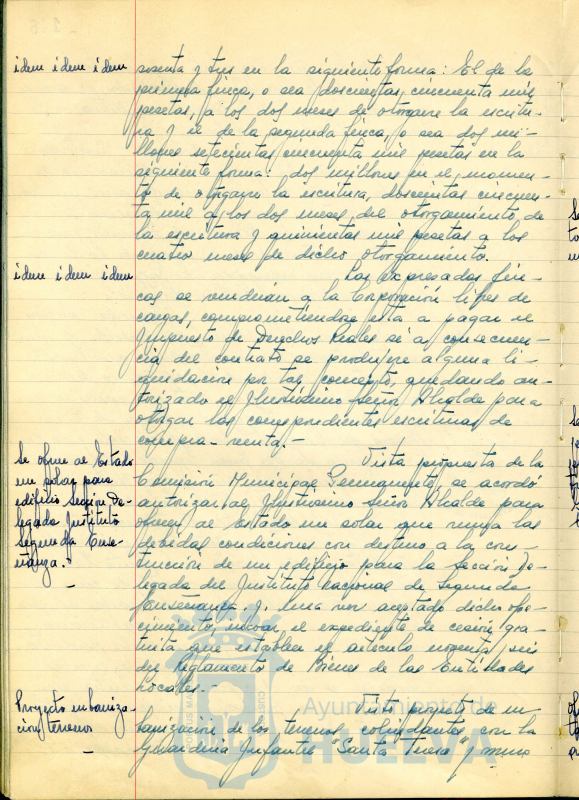 idem idem idem
senta y tres en la siguiente forma: El de la
primera finca, o sea doscientas cincuenta mil
pesetas, a los dos meses de otorgarse la escritu-
ra y el de la segunda finca, o sea dos mi-
llones setecientas cincuenta mil pesetas en la
siguiente forma: dos millones en el momen-
to de otorgarse la escritura, doscientas cincuen-
ta mil a los dos meses del otorgamiento de
la escritura y quinientas mil pesetas a los
cuatro meses de dicho otorgamiento.
idem idem idem
Las expresadas fin-
cas se venderán a la Corporación libres de
cargas, comprometiéndose esta a pagar el
Impuesto de Derechos Reales si a consecuen-
cia del contrato se produjere alguna li-
quidación por tal concepto, quedando au-
torizado el Ilustrísimo Señor Alcalde para
otorgar las correspondientes escrituras de
compra-venta.-
Se ofrece al Estado
un solar para
edificio Sección De-
legada Instituto
Segunda Ense-
ñanza.
Vista propuesta de la
Comisión Municipal Permanente, se acordó
autorizar al Ilustrísimo Señor Alcalde para
ofrecer al Estado un solar que reuna las
debidas condiciones con destino a la cons-
trucción de un edificio para la Sección De-
legada del Instituto Nacional de Segunda
Enseñanza y, una vez aceptado dicho ofre-
cimiento, incoar el expediente de cesión gra-
tuita que establece el artículo noventa y seis
del Reglamento de Bienes de las Entidades
Locales.-
Proyecto urbaniza-
ción terrenos
Visto proyecto de ur-
banización de los terrenos colindantes con la
Guardería Infantil "Santa Teresa" y
Ayuntamiento de
HUELVA